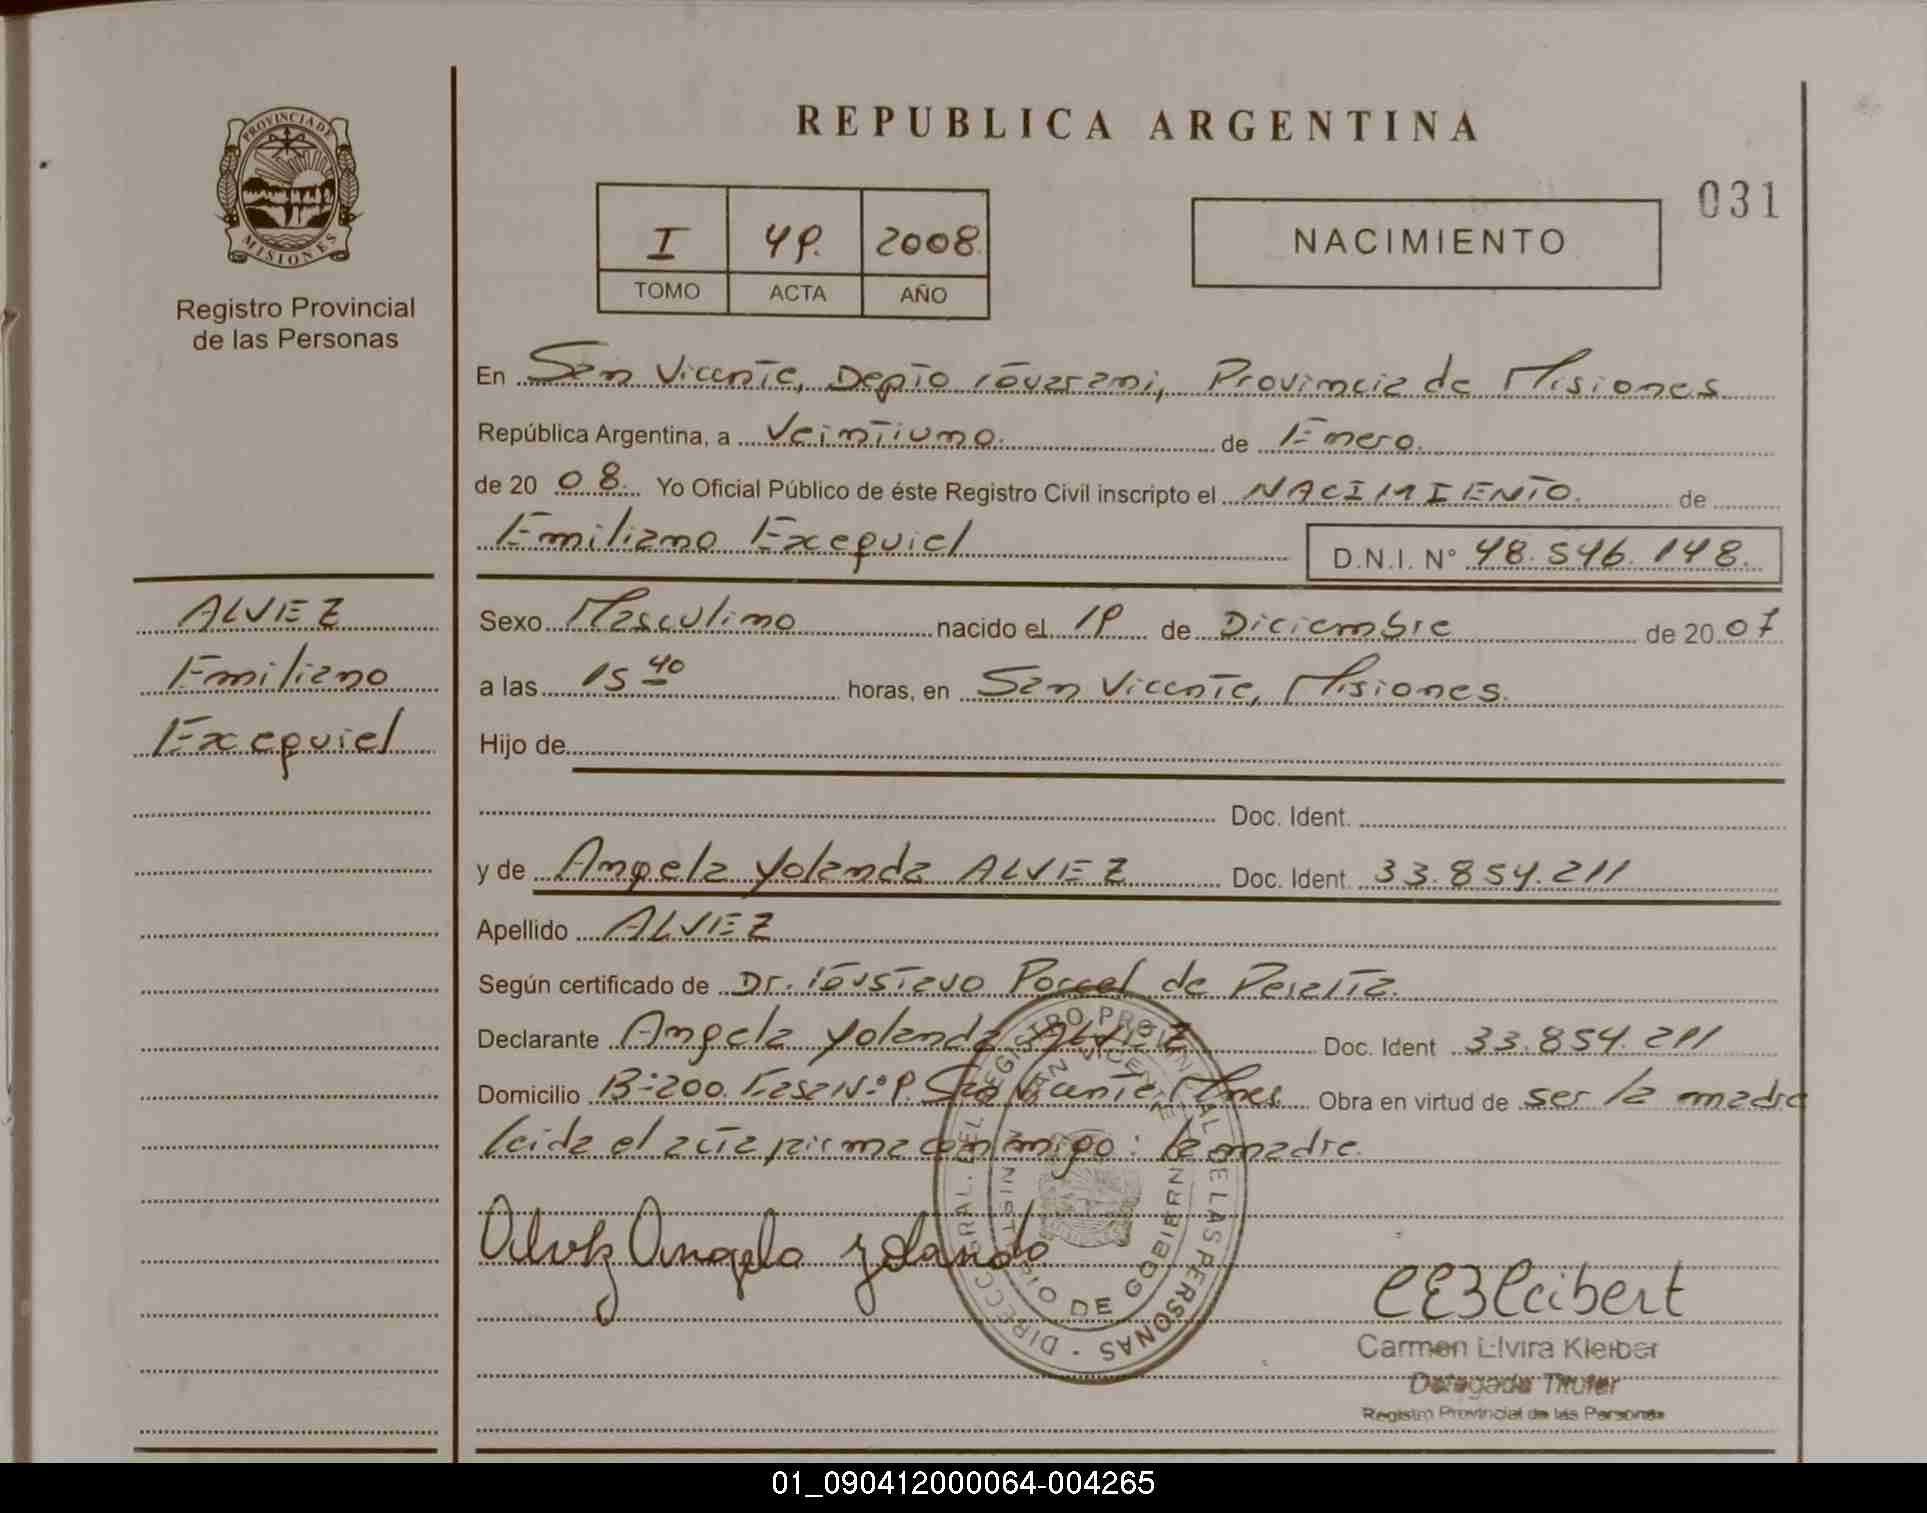 REPUBLICA ARGENTINA
031
PROVINCIA DE
MISIONES
Registro Provincial
de las Personas
I 49. 2008
TOMO ACTA AÑO
NACIMIENTO
En San Vicente, Depto Guarani, Provincia de Misiones
República Argentina, a Veintiuno. de Enero.
de 20 08. Yo Oficial Público de éste Registro Civil inscripto el NACIMIENTO. de
Emiliano Exequiel D.N.I. N° 48.546.148.
ALVEZ
Emiliano
Exequiel
Sexo Masculino nacido el 19 de Diciembre de 20 07
a las 15 40 horas, en San Vicente, Misiones.
Hijo de
Doc. Ident.
y de Angela Yolanda ALVEZ Doc. Ident. 33.854.211
Apellido ALVEZ
Según certificado de Dr. Gustavo Poccel de Peralta.
Declarante Angela Yolanda ALVEZ Doc. Ident 33.854.211
Domicilio B°200. Casa N° 9. San Vicente, Mnes Obra en virtud de ser la madre
leida el acta firma conmigo: la madre.
Alvez Angela Yolanda
DIRECC. GRAL. DEL REGISTRO PROVINCIAL DE LAS PERSONAS
SAN VICENTE
MINISTERIO DE GOBIERNO
CEKleibert
Carmen Elvira Kleiber
Delegada Titular
Registro Provincial de las Personas
01_090412000064-004265